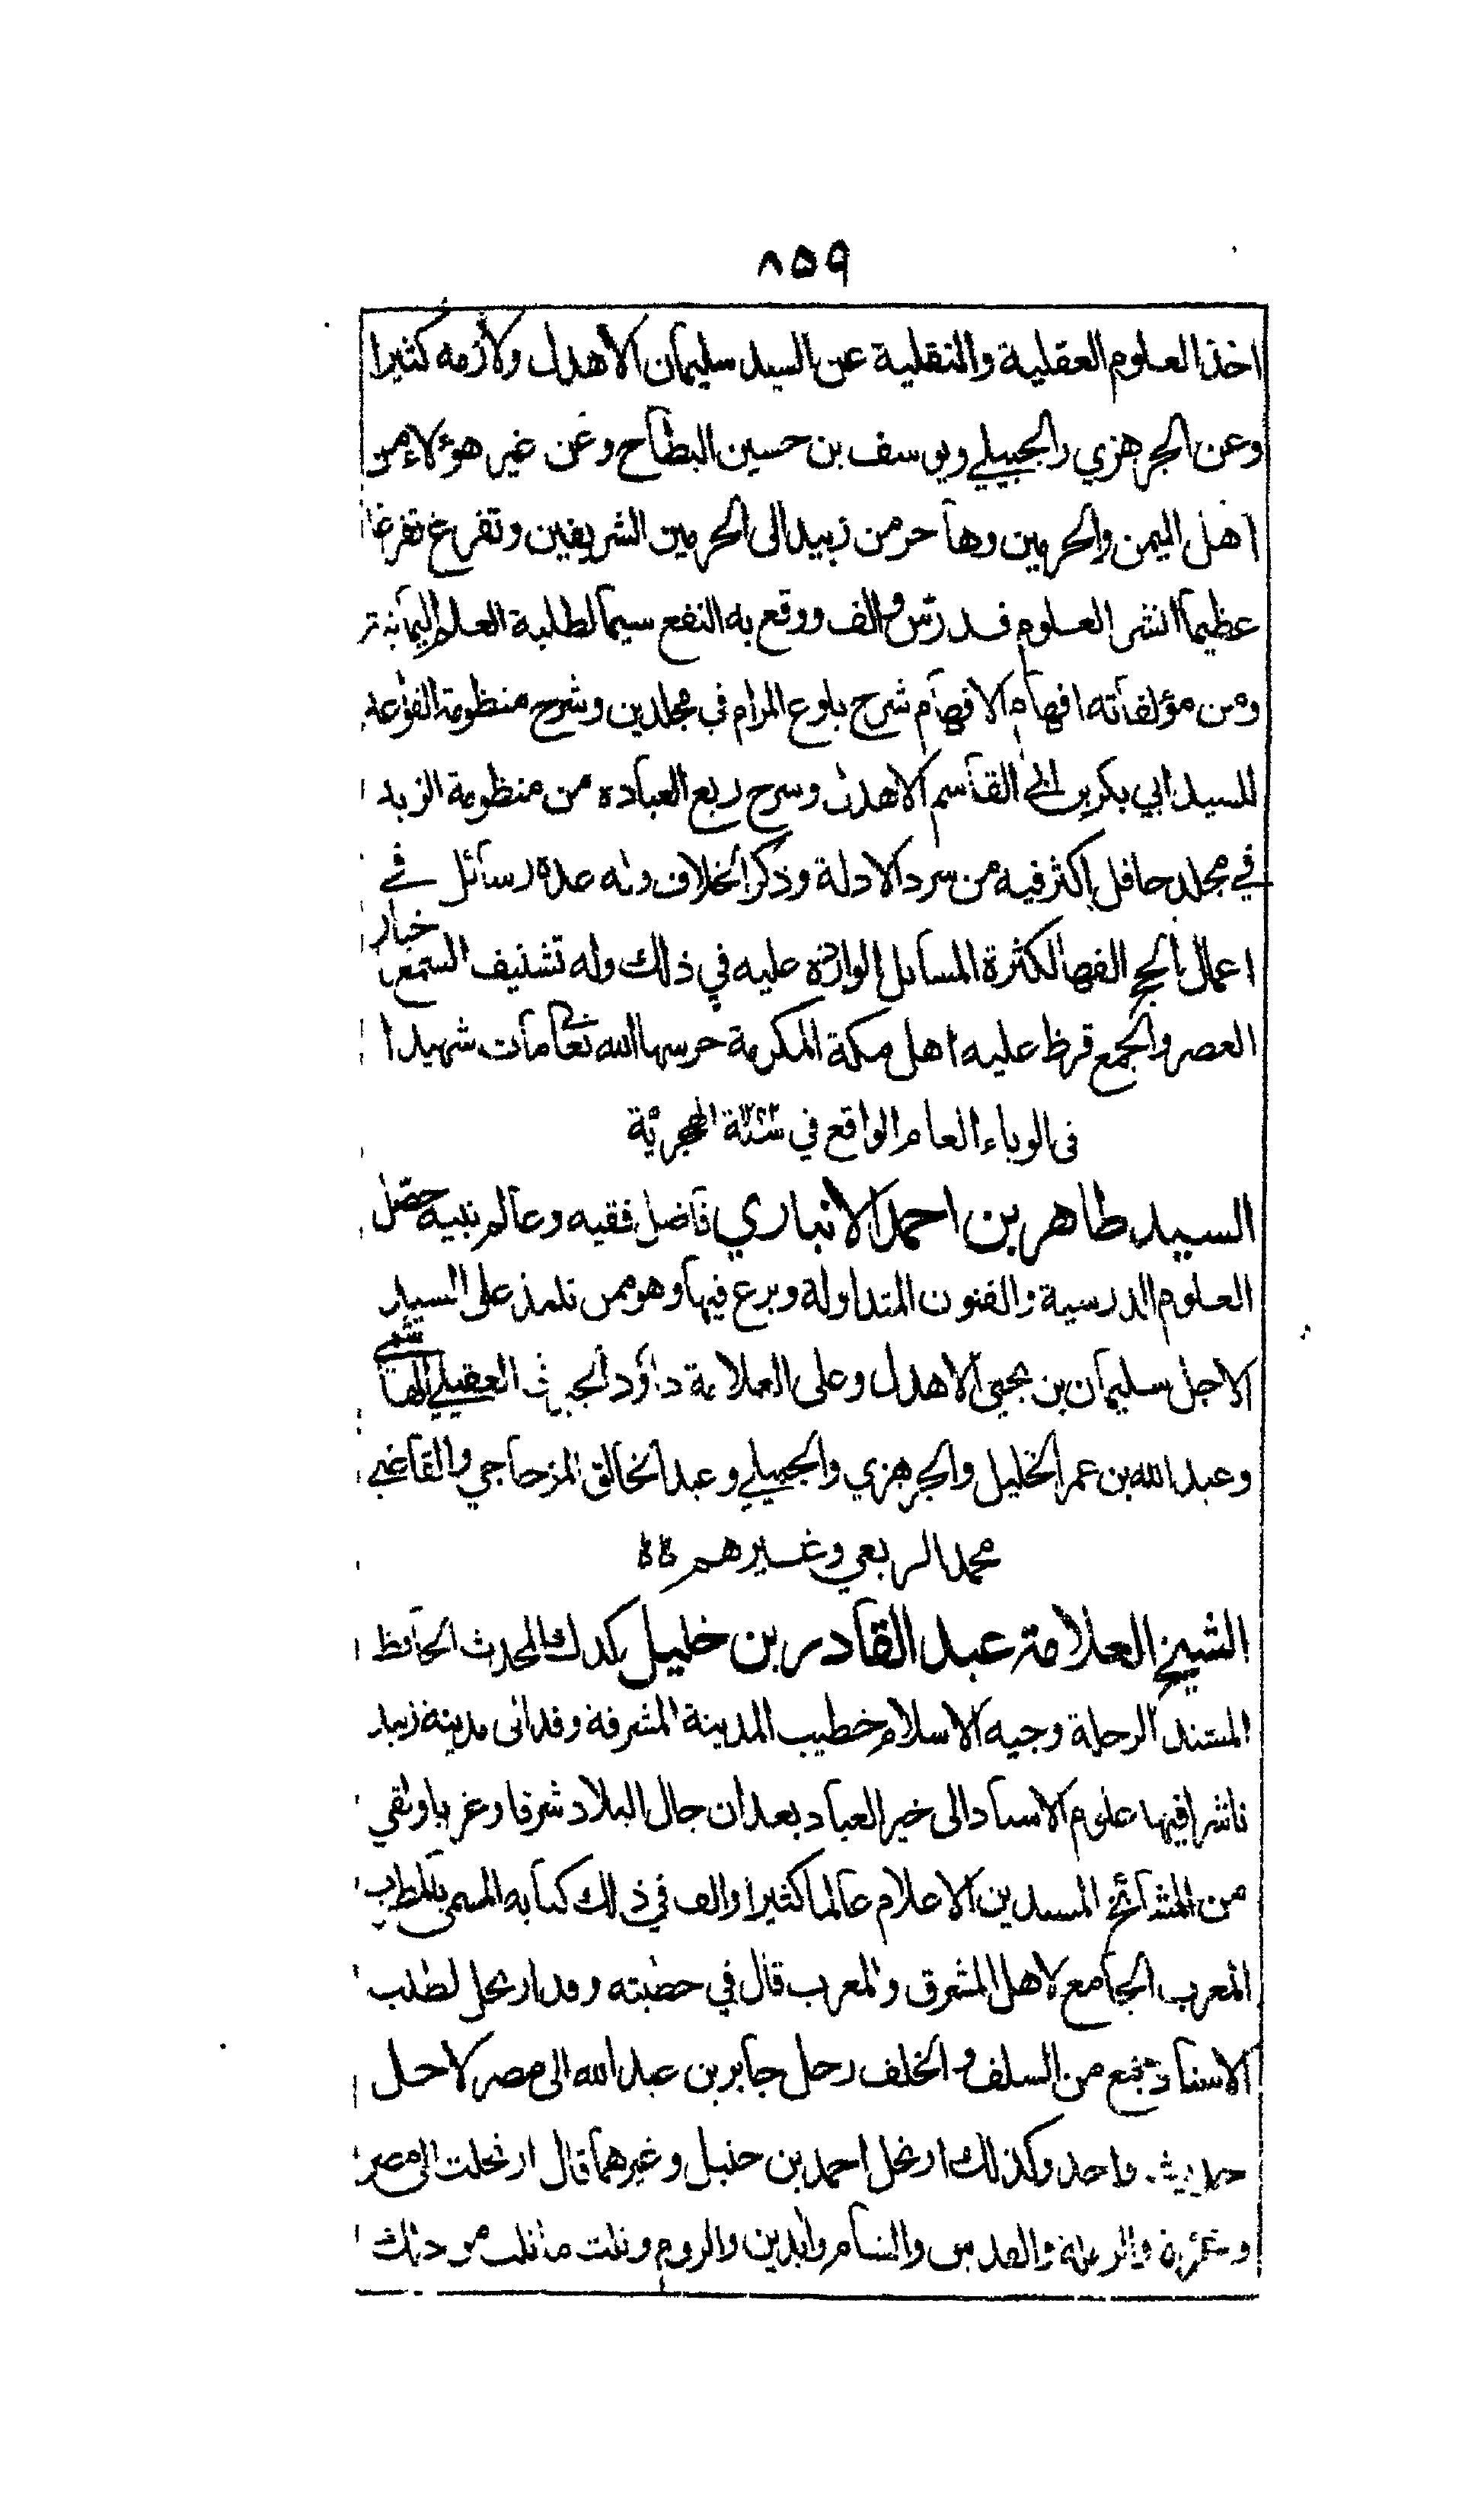 ٨٥٩
اخذ العلوم العقلية والنقلية عن السيد سليمان الاهدل ولازمه كثيرا
وعن الجرهزي والجبيلي ويوسف بن حسين البطاح وعن غير هؤلاء من
اهل اليمن والحرمين وهاجر من زبيد الى الحرمين الشريفين وتفرغ تفرغا
عظيما لنشر العلوم فدرس والف ووقع به النفع سيما لطلبة العلم اليمانية
ومن مؤلفاته افهام الافهام شرح بلوغ المرام في مجلدين وشرح منظومة القواعد
للسيد ابي بكر بن ابي القاسم الاهدل وشرح ربع العبادة من منظومة الزبد
في مجلد حافل اكثر فيه من سرد الادلة وذكر الخلاف وله عدة رسائل في
اعمال الحج الفها لكثرة المسائل الواردة عليه في ذلك وله تشنيف السمع باخبار
العصر والجمع قرظ عليه اهل مكة المكرمة حرسها الله تعا مات شهيدا
في الوباء العام الواقع في سنة الهجرية
السيد طاهر بن احمد الانباري فاضل فقيه وعالم نبيه حصّل
العلوم الدرسية والفنون المتداولة وبرع فيها وهو ممن تلمذ على السيد
الاجل سليمان بن يحيى الاهدل وعلى العلامة داؤد العقيلي الهاشمي
وعبد الله بن عمر الخليل والجرهزي والجبيلي وعبد الخالق المزجاجي والقاضي
محمد الربعي وغيرهم ۃۃ
الشيخ العلامة عبد القادر بن خليل كدك المحدث الحافظ
المسند الرحلة وجيه الاسلام خطيب المدينة المشرفة وفد الى مدينة زبيد
ناشرا فيها علوم الاسناد الى خير العباد بعد ان جال البلاد شرقا وغربا ولقي
من المشائخ المسندين الاعلام عالما كثيرا والف في ذلك كتابه المسمى بالمطرب
المعرب الجامع لاهل المشرق والمغرب قال في خطبته وقد ارتحل لطلب
الاسناد جمع من السلف والخلف رحل جابر بن عبد الله الى مصر لاجل
حديث واحد وكذلك ارتحل احمد بن حنبل وغيرهما قال ارتحلت الى مصر
وغزة والرملة والقدس والشام والروم ونلت ما نلت من ذلك